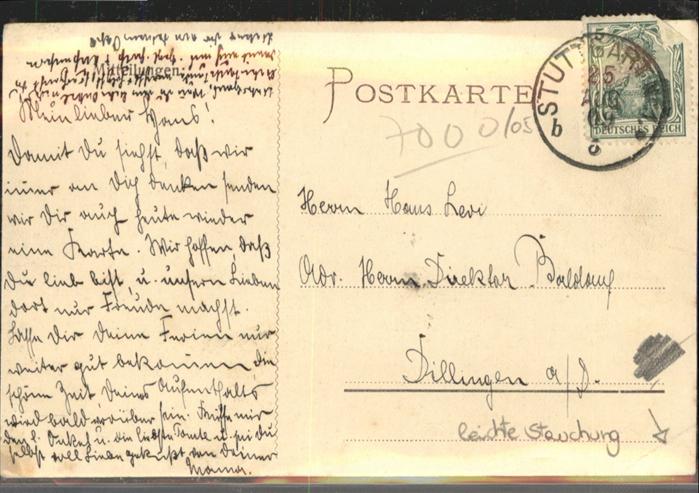 Mitteilungen.
Mein lieber Hans!
Damit Du siehst, daß wir
immer an Dich denken senden
wir Dir auch heute wieder
eine Karte. Wir hoffen, daß
Du lieb bist, u. unsern Lieben
dort nur Freude machst.
Lasse Dir deine Ferien nur
weiter gut bekommen, die
schöne Zeit Deines Aufenthalts
wird bald vorüber sein. Küsse mir
den l. Onkel u. die liebste Tante u. sei Du
selbst voll Liebe geküßt von Deiner
Mama.
POSTKARTE
7000/05
STUTTGART
25
AUG
b
DEUTSCHES REICH
Herrn Hans Levi
Adr. Herrn Direktor
Dillingen a/D.
leichte Stauchung